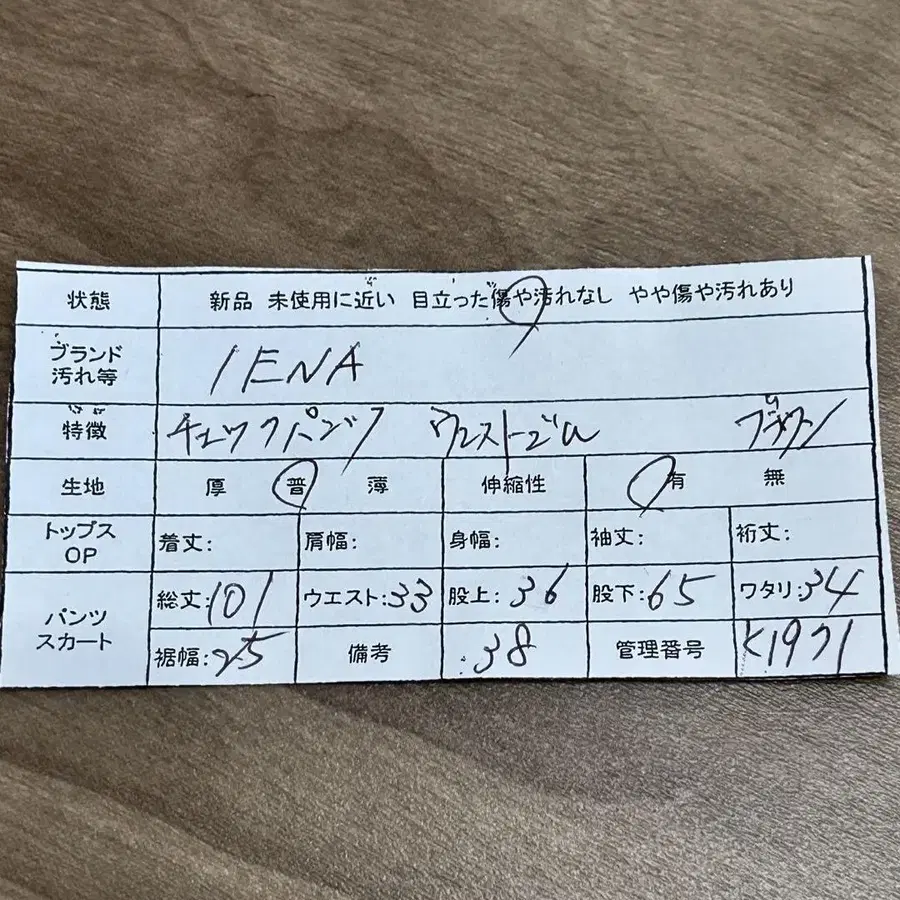 状態 新品 未使用に近い 目立った傷や汚れなし やや傷や汚れあり
ブランド
汚れ等 IENA
特徴 チェックパンツ ウエストゴム ブラウン
生地 厚 普 薄 伸縮性 有 無
トップス
OP 着丈: 肩幅: 身幅: 袖丈: 裄丈:
パンツ
スカート 総丈:101 ウエスト:33 股上:36 股下:65 ワタリ:34
裾幅:25 備考 38 管理番号 K1971